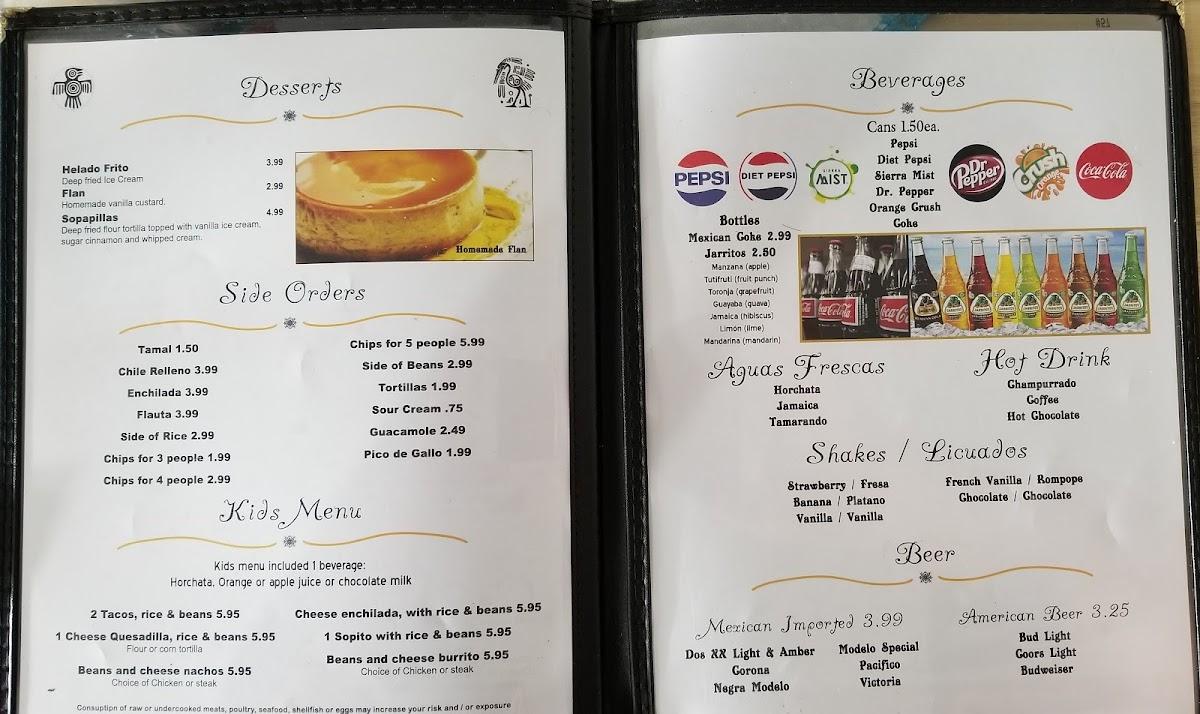 Desserts
Helado Frito 3.99
Deep fried Ice Cream
Flan 2.99
Homemade vanilla custard.
Sopapillas 4.99
Deep fried flour tortilla topped with vanilla ice cream,
sugar cinnamon and whipped cream.
Homemade Flan
Side Orders
Tamal 1.50
Chile Relleno 3.99
Enchilada 3.99
Flauta 3.99
Side of Rice 2.99
Chips for 3 people 1.99
Chips for 4 people 2.99
Chips for 5 people 5.99
Side of Beans 2.99
Tortillas 1.99
Sour Cream .75
Guacamole 2.49
Pico de Gallo 1.99
Kids Menu
Kids menu included 1 beverage:
Horchata, Orange or apple juice or chocolate milk
2 Tacos, rice & beans 5.95
1 Cheese Quesadilla, rice & beans 5.95
Flour or corn tortilla
Beans and cheese nachos 5.95
Choice of Chicken or steak
Cheese enchilada, with rice & beans 5.95
1 Sopito with rice & beans 5.95
Beans and cheese burrito 5.95
Choice of Chicken or steak
Consuption of raw or undercooked meats, poultry, seafood, shellfish or eggs may increase your risk and / or exposure
Beverages
Cans 1.50ea.
Pepsi
Diet Pepsi
Sierra Mist
Dr. Pepper
Orange Crush
Coke
PEPSI
DIET PEPSI
SIERRA
MIST
Dr Pepper
Crush
Orange
Coca-Cola
Bottles
Mexican Coke 2.99
Jarritos 2.50
Manzana (apple)
Tutifruti (fruit punch)
Toronja (grapefruit)
Guayaba (guava)
Jamaica (hibiscus)
Limón (lime)
Mandarina (mandarin)
Coca-Cola
Coca-Cola
Aguas Frescas
Horchata
Jamaica
Tamarando
Hot Drink
Champurrado
Coffee
Hot Chocolate
Shakes / Licuados
Strawberry / Fresa
Banana / Platano
Vanilla / Vanilla
French Vanilla / Rompope
Chocolate / Chocolate
Beer
Mexican Imported 3.99
Dos XX Light & Amber
Corona
Negra Modelo
Modelo Special
Pacifico
Victoria
American Beer 3.25
Bud Light
Coors Light
Budweiser